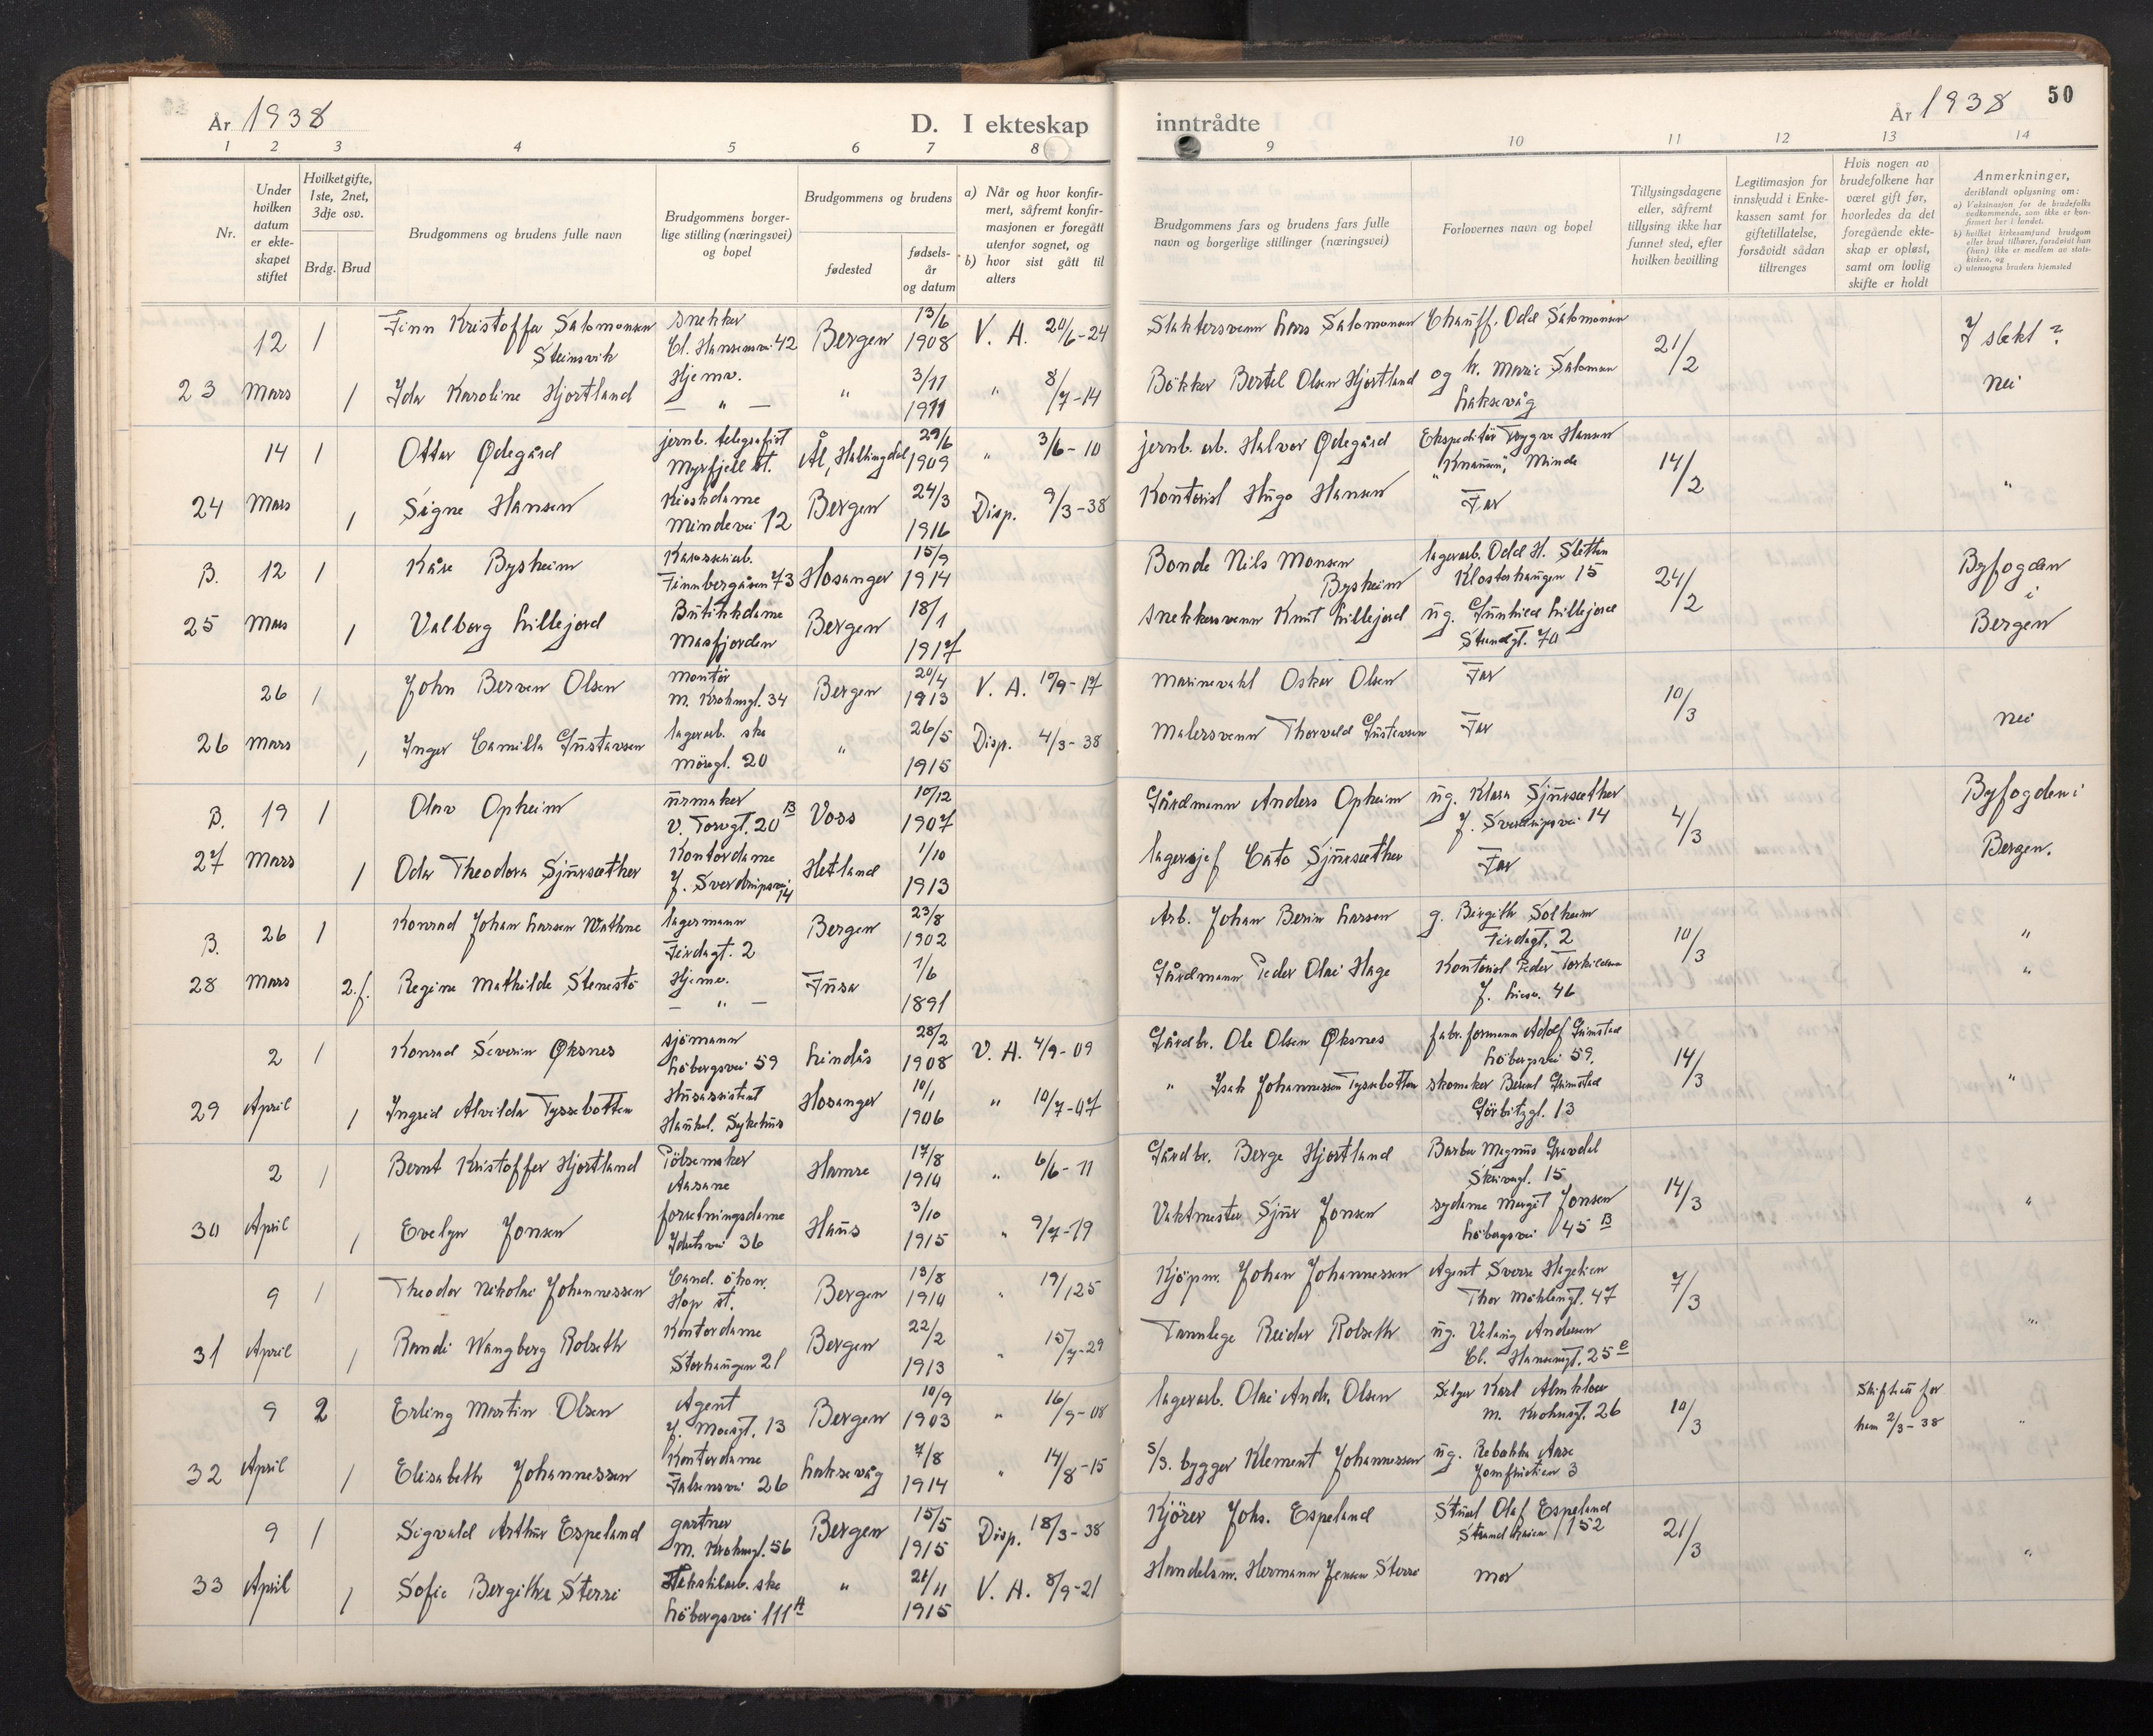 År 1938
D. I ekteskap inntrådte
År 1938 50
1 2 3 4 5 6 7 8 9 10 11 12 13 14
Nr.
Under hvilken datum er ekteskapet stiftet
Hvilket gifte, 1ste, 2net, 3dje osv.
Brdg. Brud
Brudgommens og brudens fulle navn
Brudgommens borgerlige stilling (næringsvei) og bopel
Brudgommens og brudens
fødested
fødselsår og datum
a) Når og hvor konfirmert, såfremt konfirmasjonen er foregått utenfor sognet, og
b) hvor sist gått til alters
Brudgommens fars og brudens fars fulle navn og borgerlige stillinger (næringsvei)
Forlovernes navn og bopel
Tillysingsdagene eller, såfremt tillysing ikke har funnet sted, efter hvilken bevilling
Legitimasjon for innskudd i Enkekassen samt for giftetillatelse, forsåvidt sådan tiltrenges
Hvis nogen av brudefolkene har været gift før, hvorledes da det foregående ekteskap er opløst, samt om lovlig skifte er holdt
Anmerkninger,
deriblandt oplysning om:
a) Vaksinasjon for de brudefolks vedkommende, som ikke er konfirmert her i landet.
b) hvilket kirkesamfund brudgom eller brud tilhører, forsåvidt han (hun) ikke er medlem av statskirken, og
c) utensogns bruders hjemsted
12 1 Finn Kristoffer Salomonsen Steinsvik snekker Cl. Hansensvei 42 Bergen 13/6 1908 V. A. 20/6-24 Slaktersvenn Lars Salomonsen Chauff. Odd Salomonsen 21/2 I slekt?
23 Mars 1 Ida Karoline Hjortland Hjemv. — " — " 3/11 1911 " 8/7-14 Bökker Bertel Olsen Hjortland og fr. Marie Salomon Laksevåg nei
14 1 Ottar Ødegård jernb. telegrafist Myrfjell st. Ål, Hallingdal 29/6 1909 " 3/6-10 jernb. arb. Halvor Ødegård Ekspeditör Trygve Hansen "Knausen", Minde 14/2
24 Mars 1 Signe Hansen Kioskdame Mindevei 12 Bergen 24/3 1916 Disp. 9/3-38 Kontorist Hugo Hansen Far "
B. 12 1 Kåre Bysheim Karosseriarb. Finnbergåsen 73 Hosanger 15/9 1914 Bonde Nils Monsen Bysheim lagerarb. Odd H. Sletten Klosterhaugen 15 24/2 Byfogden i Bergen
25 Mars 1 Valborg Lillejord Butikkdame Masfjorden Bergen 18/1 1917 snekkersvenn Knut Lillejord ug. Gunhild Lillejord Strandgt. 70
26 1 John Berven Olsen montör M. Krohnsgt. 34 Bergen 20/4 1913 V. A. 19/9-17 Marinevakt Oskar Olsen Far 10/3
26 Mars 1 Inger Camilla Gustavsen lagerarb. ske Möregt. 20 " 26/5 1915 Disp. 4/3-38 Malersvenn Thorvald Gustavsen Far nei
B. 19 1 Olav Opheim urmaker V. Torvgt. 20 B Voss 10/12 1907 Gårdmann Anders Opheim ug. Klara Sjursæther J. Sverdrupsvei 14 4/3 Byfogden i Bergen.
27 Mars 1 Oda Theodora Sjursæther Kontordame J. Sverdrupsvei 14 Hetland 1/10 1913 lagersjef Cato Sjursæther Far
B. 26 1 Konrad Johan Larsen Wathne lagermann Firdagt. 2 Bergen 23/8 1902 Arb. Johan Berin Larsen g. Birgith Solheim Firdagt. 2 10/3 "
28 Mars 2.f. Regine Mathilde Stenestö Hjemv. — " — Fusa 1/6 1891 Gårdmann Peder Olai Hage Kontorist Peder Torkildsen J. 46 "
2 1 Konrad Severin Øksnes sjömann Löbergsvei 59 Lindås 28/2 1908 V. A. 4/9-09 Gårdbr. Ole Olsen Øksnes fabr. formann Adolf Grimstad Löbergsvei 59. 14/3
29 April 1 Ingrid Alvilda Tyssebotten Husassistent Haukel. Sykehus Hosanger 10/1 1906 " 10/7-07 " Isak Johannessen Tyssebotten skomaker Berent Grimstad Görbitzgt. 13 "
2 1 Bernt Kristoffer Hjortland Pölsemaker Aasane Hamre 17/8 1910 " 6/6-11 Gårdbr. Berge Hjortland Barber Magnus Gravdal Skivegt. 15 14/3
30 April 1 Evelyn Jonsen forretningsdame Idrettsvei 36 Haus 3/10 1915 " 9/7-19 Vaktmester Sjur Jonsen sydame Margit Jonsen Löbergsvei 45 B "
9 1 Theodor Nikolai Johannessen Cand. ökon. Hop st. Bergen 13/8 1910 " 19/125 Kjöpm. Johan Johannessen Agent Sverre Hagelien Thor Möhlensgt. 47 7/3
31 April 1 Randi Wangberg Rolseth Kontordame Storhaugen 21 Bergen 22/2 1913 " 15/7-29 Tannlege Reidar Rolseth ug. Andersen Cl. Hansensgt. 25 c "
9 2 Erling Martin Olsen Agent J. Moesgt. 13 Bergen 10/9 1903 " 16/9-08 lagerarb. Olai Andr. Olsen Selger Karl Almklov M. Krohnsgt. 26 10/3 Skift hos for ham 2/3-38 "
32 April 1 Elisabeth Johannessen Kontordame Falsensvei 26 Laksevåg 7/8 1914 " 14/8-15 S/s. bygger Klement Johannessen ug. Rebekka Aase Jomfrustien 3
9 1 Sigvald Arthur Espeland gartner M. Krohnsgt. 56 Bergen 15/5 1915 Disp. 18/3-38 Kjörer Johs. Espeland Stud. Olaf Espeland Strandveien 152 21/3
33 April 1 Sofie Bergithe Sterri Tekstilarb. ske Löbergsvei 111 A " 21/11 1915 V. A. 8/9-21 Handelsm. Hermann Jensen Sterri mor "